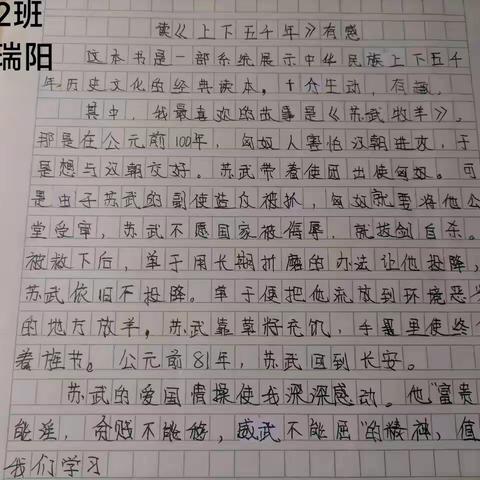 2班
瑞阳
读《上下五千年》有感
这本书是一部系统展示中华民族上下五千
年历史文化的经典读本。十分生动，有趣。
其中，我最喜欢的故事是《苏武牧羊》。
那是在公元前100年，匈奴人害怕汉朝进攻，于
是想与汉朝交好。苏武带着使团出使匈奴。可
是由于苏武的副使造反被抓，匈奴就要将他公
堂受审，苏武不愿国家被侮辱，就拔剑自杀。
被救下后，单于用长期折磨的办法让他投降，
苏武依旧不投降。单于便把他流放到环境恶劣
的地方放羊。苏武靠草籽充饥，手里使终
着旌节。公元前81年，苏武回到长安。
苏武的爱国情操使我深深感动。他"富贵
能淫，贫贱不能移，威武不能屈"的精神，值
我们学习